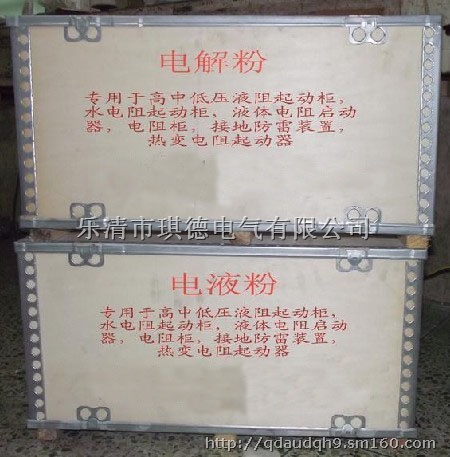 电解粉
专用于高中低压液阻起动柜，
水电阻起动柜、液体电阻启动
器，电阻柜，接地防雷装置，
热变电阻起动器
乐清市琪德电气有限公司
电液粉
专用于高中低压液阻起动柜，
水电阻起动柜，液体电阻启动
器，电阻柜，接地防雷装置，
热变电阻起动器
http://qdaudqh9.sm160.com